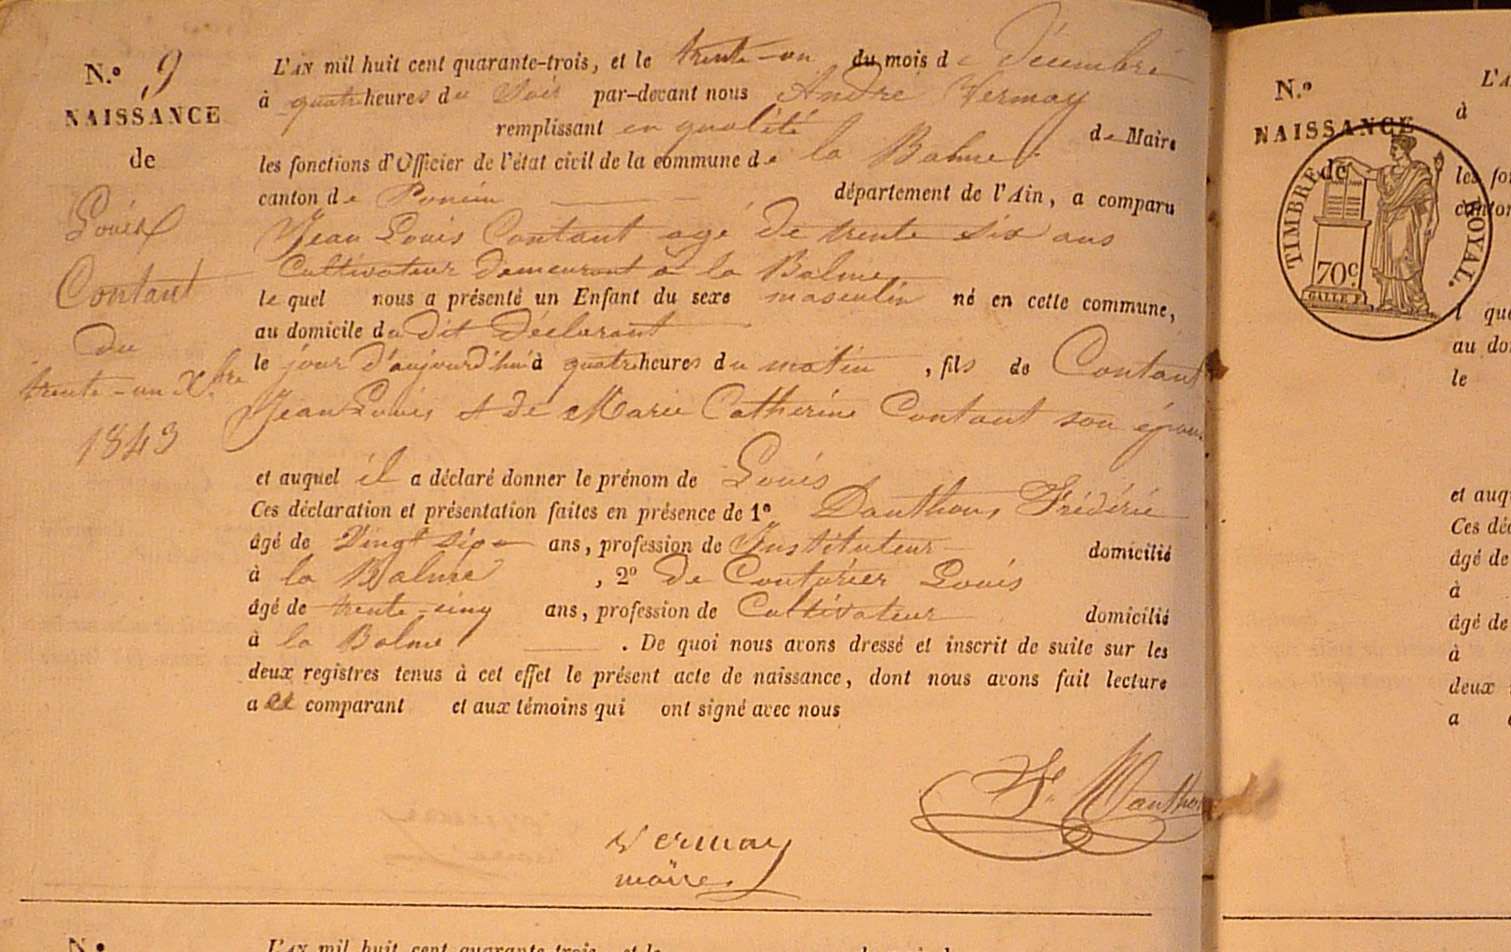 N.º 9
NAISSANCE
de
Louis
Contant
du
trente-un Xbre
1843
L'AN mil huit cent quarante-trois, et le trente-un du mois de Décembre
à quatre heures du Soir par-devant nous André Vermay
remplissant en qualité de Maire
les fonctions d'Officier de l'état civil de la commune de la Balme
canton de Poncin département de l'Ain, a comparu
Jean Louis Contant agé de trente six ans
Cultivateur demeurant à la Balme
le quel nous a présenté un Enfant du sexe masculin né en cette commune,
au domicile du dit déclarant
le jour d'aujourd'hui à quatre heures du matin , fils de Contant
Jean Louis & de Marie Catherine Contant son épouse
et auquel il a déclaré donner le prénom de Louis
Ces déclaration et présentation faites en présence de 1º Danthon, Frédéric
âgé de Vingt six ans, profession de Instituteur domicilié
à la Balme , 2º de Couturier Louis
âgé de trente-cinq ans, profession de Cultivateur domicilié
à la Balme . De quoi nous avons dressé et inscrit de suite sur les
deux registres tenus à cet effet le présent acte de naissance, dont nous avons fait lecture
a et comparant et aux témoins qui ont signé avec nous
Fc. Danthon
Vermay
maire
N.º
L'AN mil huit cent quarante-trois, et le
N.º
NAISSANCE
de
TIMBRE ROYAL.
70c.
GALLE F.
L'A
à
les fo
canton
l que
au do
le
et auq
Ces déc
âgé de
à
âgé de
à
deux
a